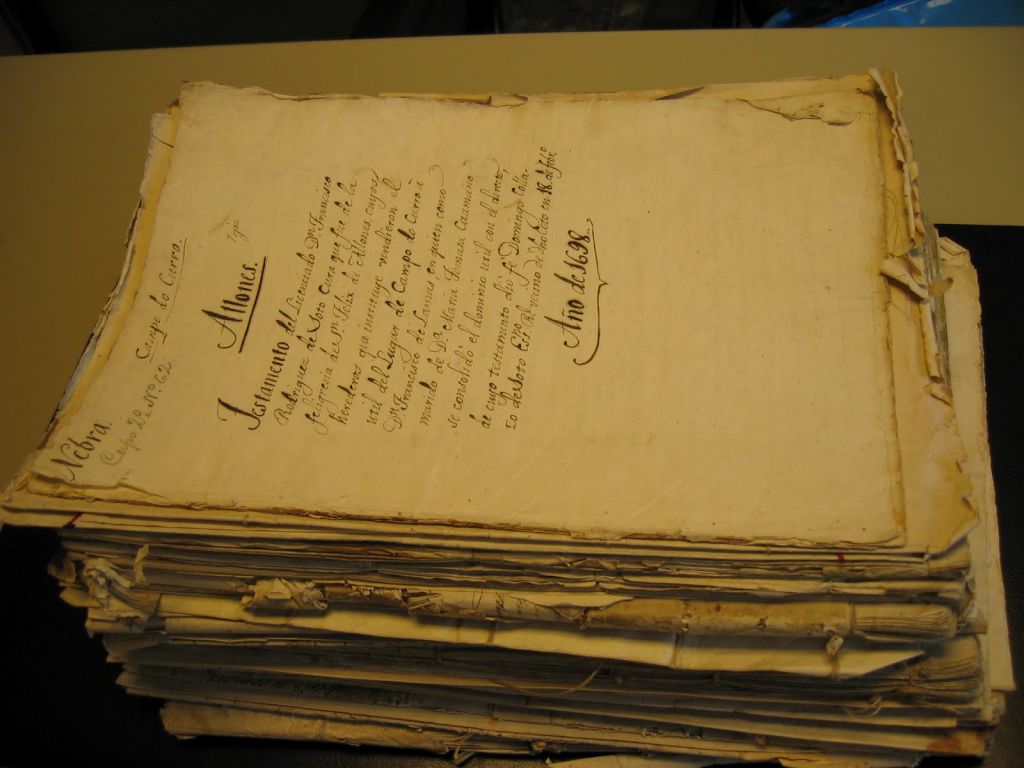 Nebra.
Campo do Curro.
Cupo 2º Nº 62
Allones.
Testamento del Licenciado Dn. Francisco
Rodriguez de Soto Cura que fue de la
feligresia de Sn. Felix de Allones cuyos
herederos que instituye vendieron el
util del Lugar de Campo do Curro à
Dn. Francisco de Lamas, en quen como
marido de Da. Maria Tomasa Caamaño
se consolidó el dominio util con el directo,
de cuyo testamento dió fé Domingo Colla-
zo de Soto Esno. de
en 18 de febº.
Año de 1698.